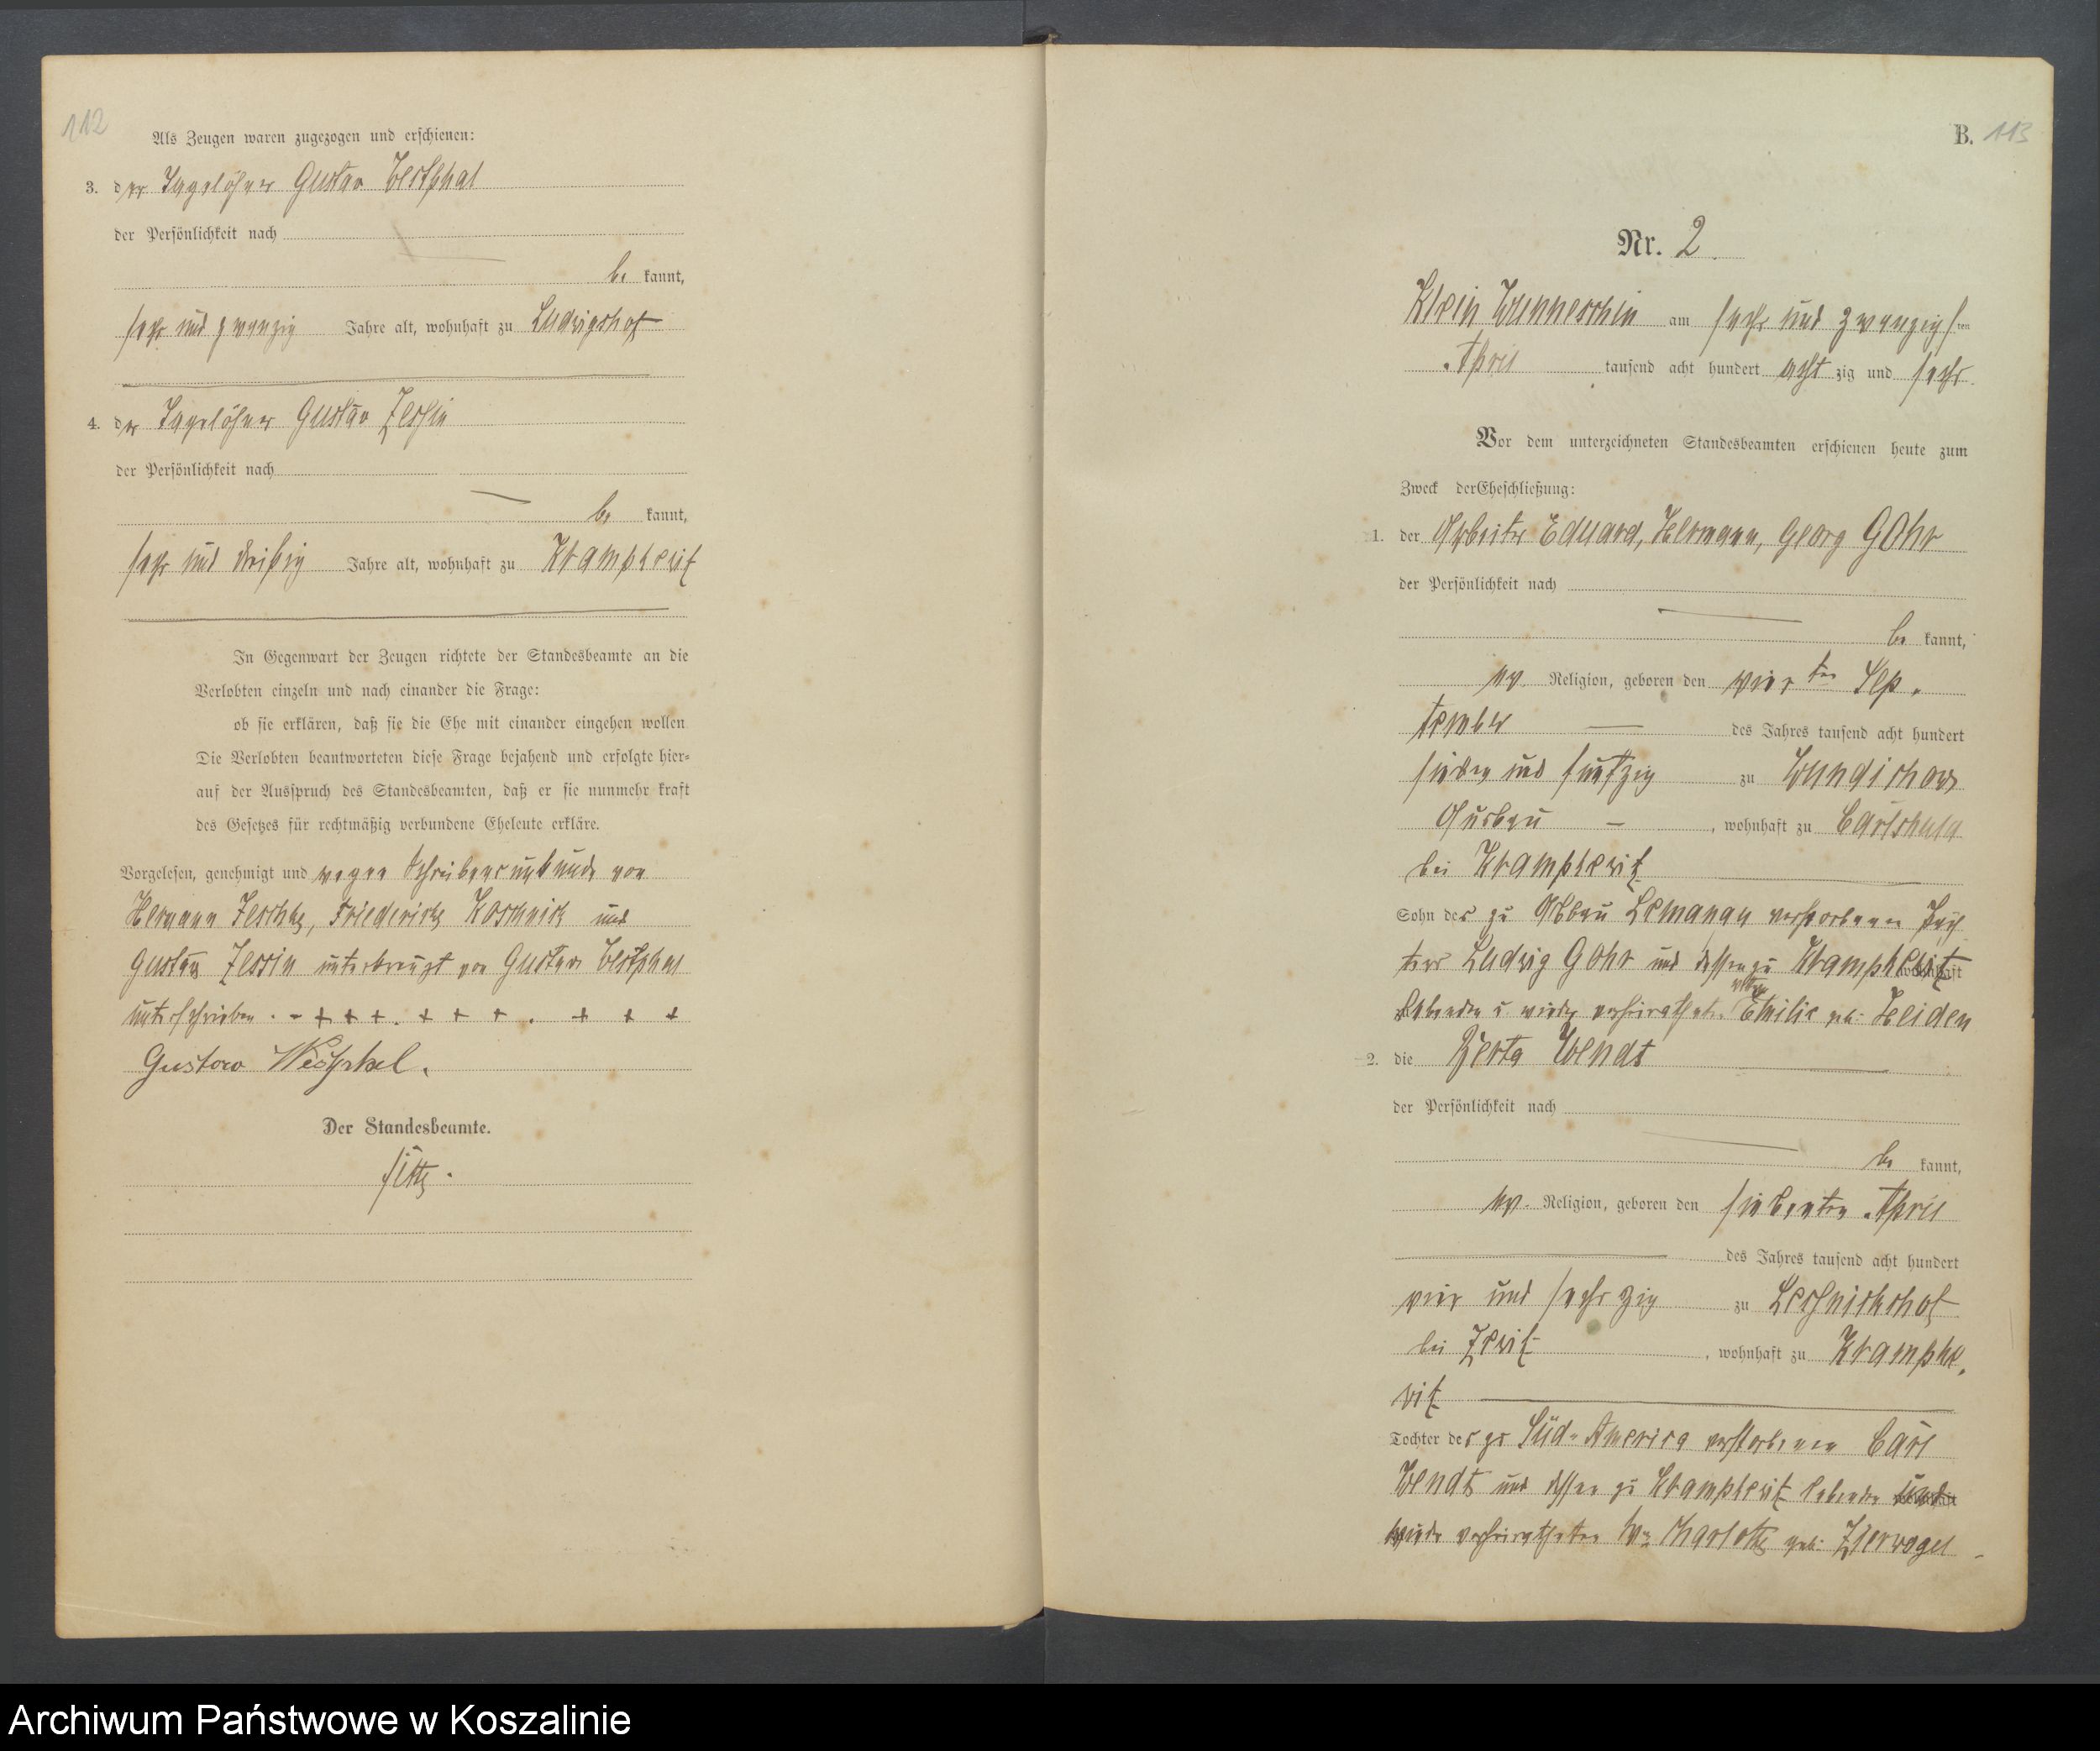 112
Als Zeugen waren zugezogen und erschienen:
3. der Tagelöhner Gustav Westphal
der Persönlichkeit nach
be kannt,
sechs und zwanzig Jahre alt, wohnhaft zu Ludwigshof
4. der Tagelöhner Gustav Zessin
der Persönlichkeit nach
be kannt,
sechs und dreißig Jahre alt, wohnhaft zu Krampkewitz
In Gegenwart der Zeugen richtete der Standesbeamte an die
Verlobten einzeln und nach einander die Frage:
ob sie erklären, daß sie die Ehe mit einander eingehen wollen
Die Verlobten beantworteten diese Frage bejahend und erfolgte hier-
auf der Ausspruch des Standesbeamten, daß er sie nunmehr kraft
des Gesetzes für rechtmäßig verbundene Eheleute erkläre.
Vorgelesen, genehmigt und wegen Schreibensunkunde von
Hermann Jeschke, Friedericke Koschnick und
Gustav Zessin unterkreuzt von Gustav Westphal
unterschrieben. - + + +. + + + . + + +
Gustav Westphal.
Der Standesbeamte.
B. 113
Nr. 2.
Klein Wunneschin am sechs und zwanzigsten
April tausend acht hundert acht zig und sechs.
Vor dem unterzeichneten Standesbeamten erschienen heute zum
Zweck der Eheschließung:
1. der Arbeiter Eduard, Hermann, Georg Gohr
der Persönlichkeit nach
be kannt,
ev. Religion, geboren den vierten Sep-
tember des Jahres tausend acht hundert
sieben und funfzig zu Wundichow
Ausbau , wohnhaft zu Carlshula
bei Krampkewitz
Sohn des zu Abbau verstorbenen Päch
ters Ludwig Gohr und dessen zu Krampkewitz wohnhaft
lebenden u. wieder verheiratheten Emilie geb. Heiden
2. die Berta Wendt
der Persönlichkeit nach
be kannt,
ev. Religion, geboren den siebenten April
des Jahres tausend acht hundert
vier und sechszig zu Leschnickshof
bei Zewitz , wohnhaft zu Krampke-
witz
Tochter des zu Süd-America verstorbenen Carl
Wendt und dessen zu Krampkewitz lebenden und
wieder verheiratheten Charlotte geb. Ziervogel
Archiwum Państwowe w Koszalinie